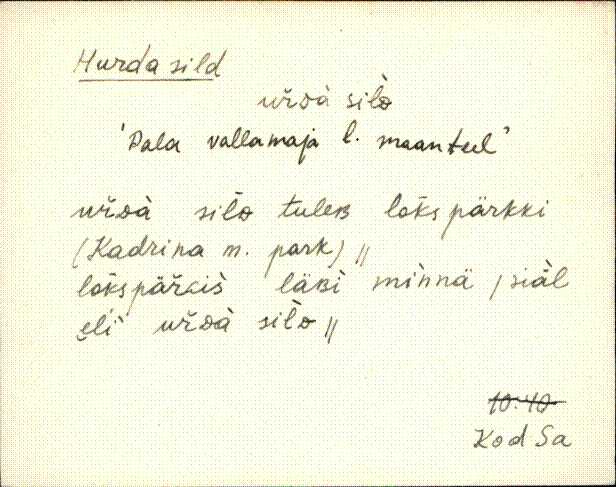 Hurda sild
ur̆ᴅà sìlᴅ
'Pala vallamaja l. maanteel'
ur̆ᴅà sìlᴅ tuleʙ lokspärkki
(Kadrina m. park) //
lokspär̆ɢis läʙì mìnnä / siäl
eĺi ur̆ᴅà sìlᴅ //
10.40
Kod Sa